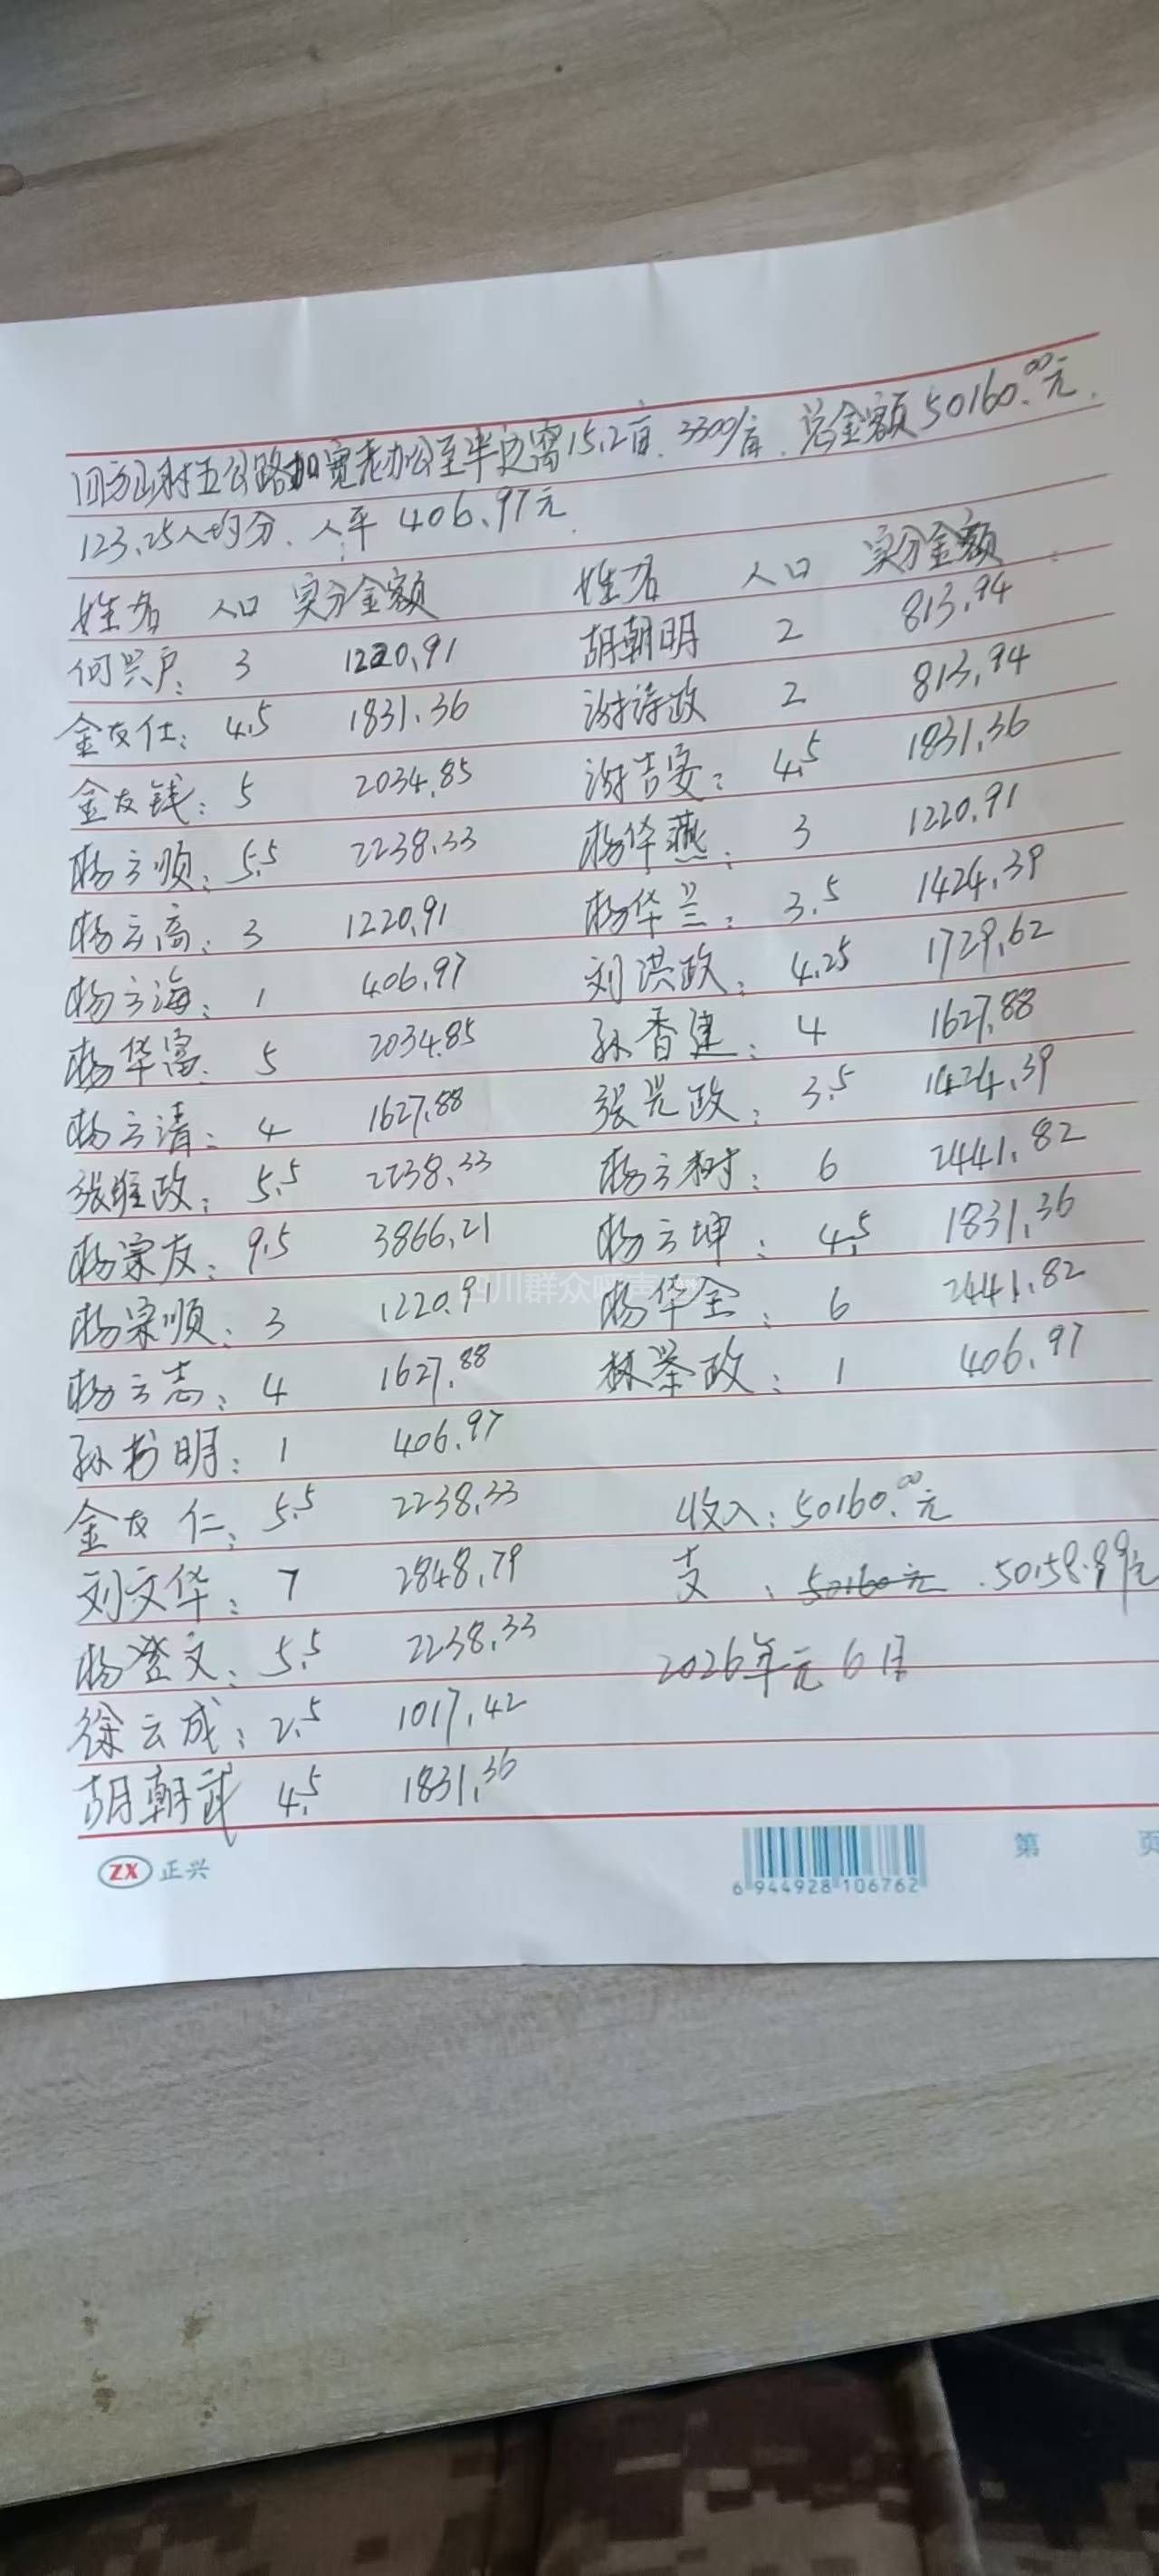 四方山村五公路加宽老办公至半边窝15.2亩、3300/亩、总金额50160.00元.
123.25人均分、人平 406.97元
姓名 人口 实分金额 姓名 人口 实分金额
何兴户: 3 1220.91 胡朝明 2 813.94
金友仕: 4.5 1831.36 谢诗政 2 813.94
金友钱: 5 2034.85 谢吉安: 4.5 1831.36
杨立顺: 5.5 2238.33 杨华燕: 3 1220.91
杨立高: 3 1220.91 杨华兰: 3.5 1424.39
杨立海: 1 406.97 刘洪政: 4.25 1729.62
杨华富: 5 2034.85 孙香建: 4 1627.88
杨立清: 4 1627.88 张光政: 3.5 1424.39
张维政: 5.5 2238.33 杨立树: 6 2441.82
杨宗友: 9.5 3866.21 杨立坤: 4.5 1831.36
四川群众呼声
杨宗顺: 3 1220.91 杨华全: 6 2441.82
杨立志: 4 1627.88 林荣政: 1 406.97
孙书明: 1 406.97
金友仁: 5.5 2238.33 收入: 50160.00元
刘文华: 7 2848.79 支: 50160元 .50158.89元
杨登文: 5.5 2238.33 2026年元6日
徐云成: 2.5 1017.42
胡朝武 4.5 1831.36
ZX 正兴 第 页
6 944928 106762